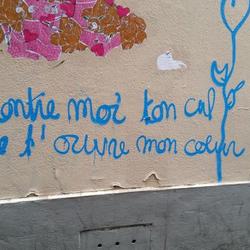 ontre moi ton cul
e t'ouvre mon coeur